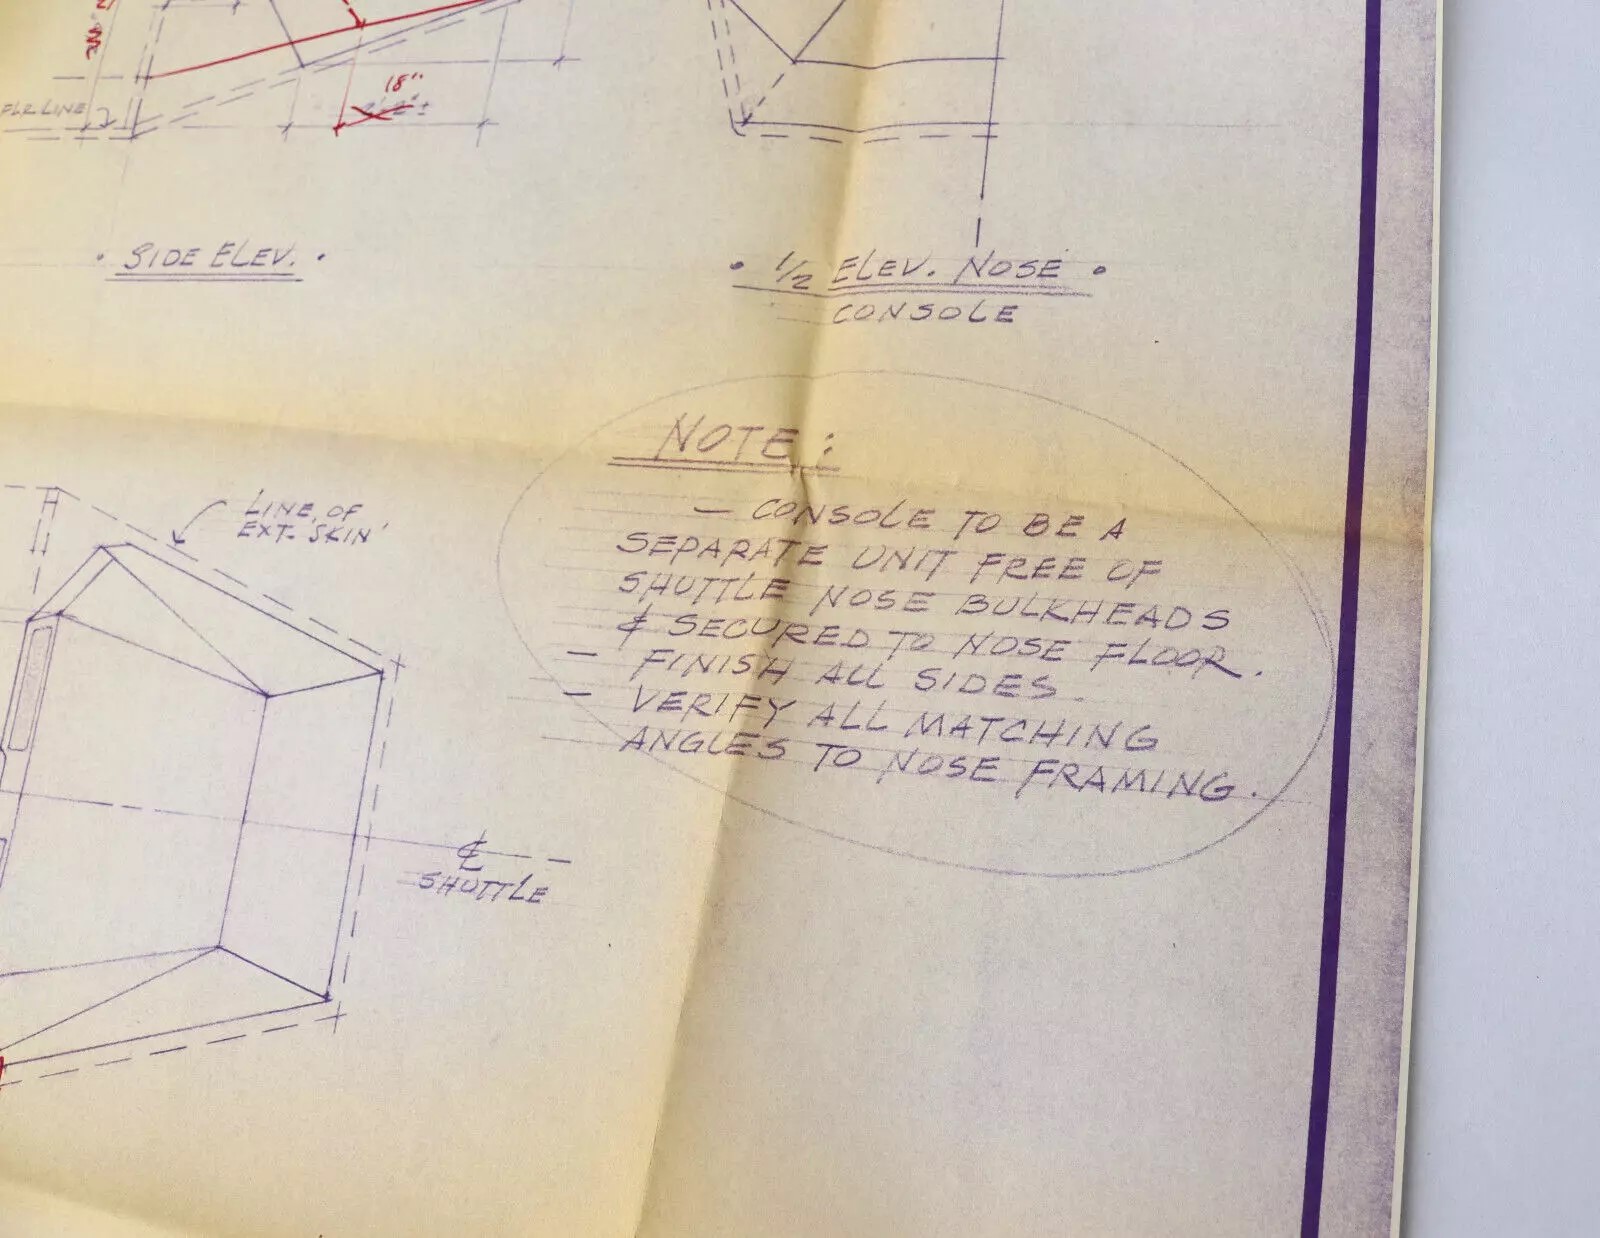 18"
FLR LINE
• SIDE ELEV. •
• 1/2 ELEV. NOSE •
CONSOLE
NOTE:
— CONSOLE TO BE A
SEPARATE UNIT FREE OF
SHUTTLE NOSE BULKHEADS
& SECURED TO NOSE FLOOR.
— FINISH ALL SIDES.
— VERIFY ALL MATCHING
ANGLES TO NOSE FRAMING.
LINE OF
EXT. 'SKIN'
℄
SHUTTLE